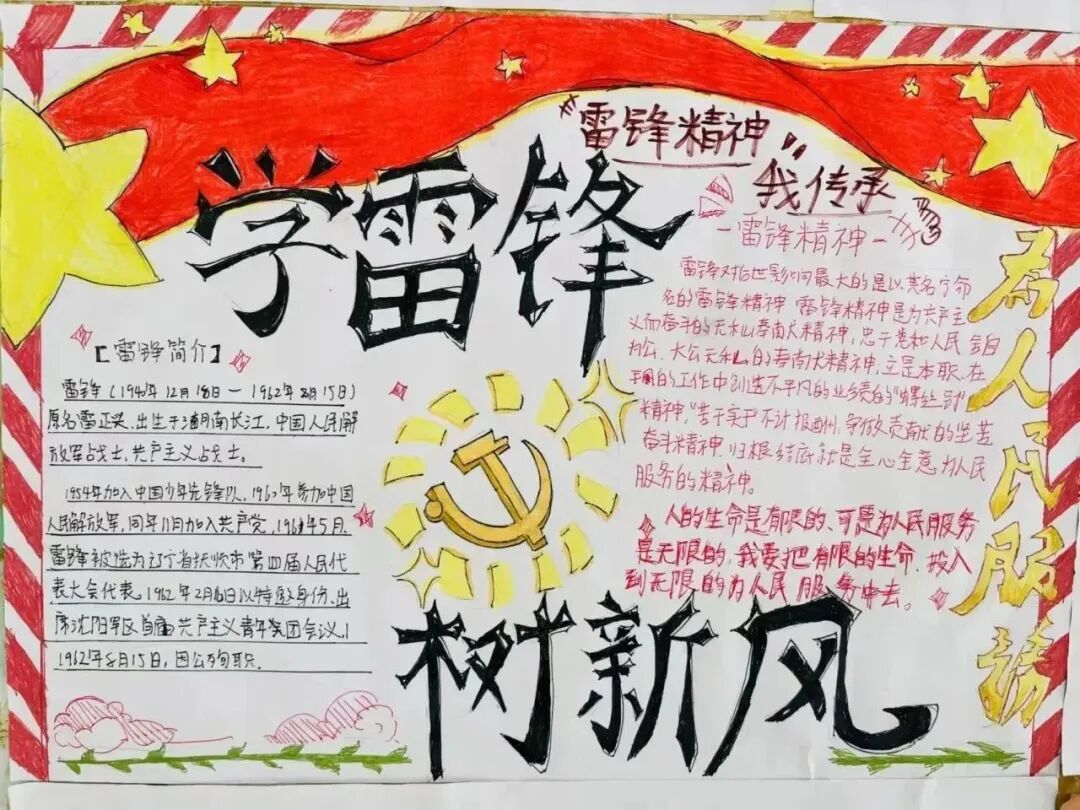 学雷锋
树新风
雷锋精神
我传承
【雷锋简介】
雷锋(1940年12月18日—1962年8月15日)
原名雷正兴,出生于湖南长江,中国人民解
放军战士,共产主义战士。
1954年加入中国少年先锋队,1960年参加中国
人民解放军,同年11月加入共产党,1961年5月,
雷锋被选为辽宁省抚顺市第四届人民代
表大会代表,1962年2月
日以特邀身份,出
席沈阳军区首届共产主义青年
团会议,
1962年8月15日,因公殉职.
—雷锋精神—
雷锋对后世影响最大的是以其名字命
名的雷锋精神 雷锋精神是为共产主
义而奋斗的无私奉献精神,忠于党和人民 舍己
为公、大公无私的奉献精神,立足本职、在
平凡的工作中创造不平凡的业绩的“螺丝钉
精神,”苦干实干 不计报酬、争做贡献的艰苦
奋斗精神 归根结底就是全心全意为人民
服务的精神。
人的生命是有限的、可是为人民服务
是无限的,我要把有限的生命,投入
到无限的为人民服务中去。
为人民服